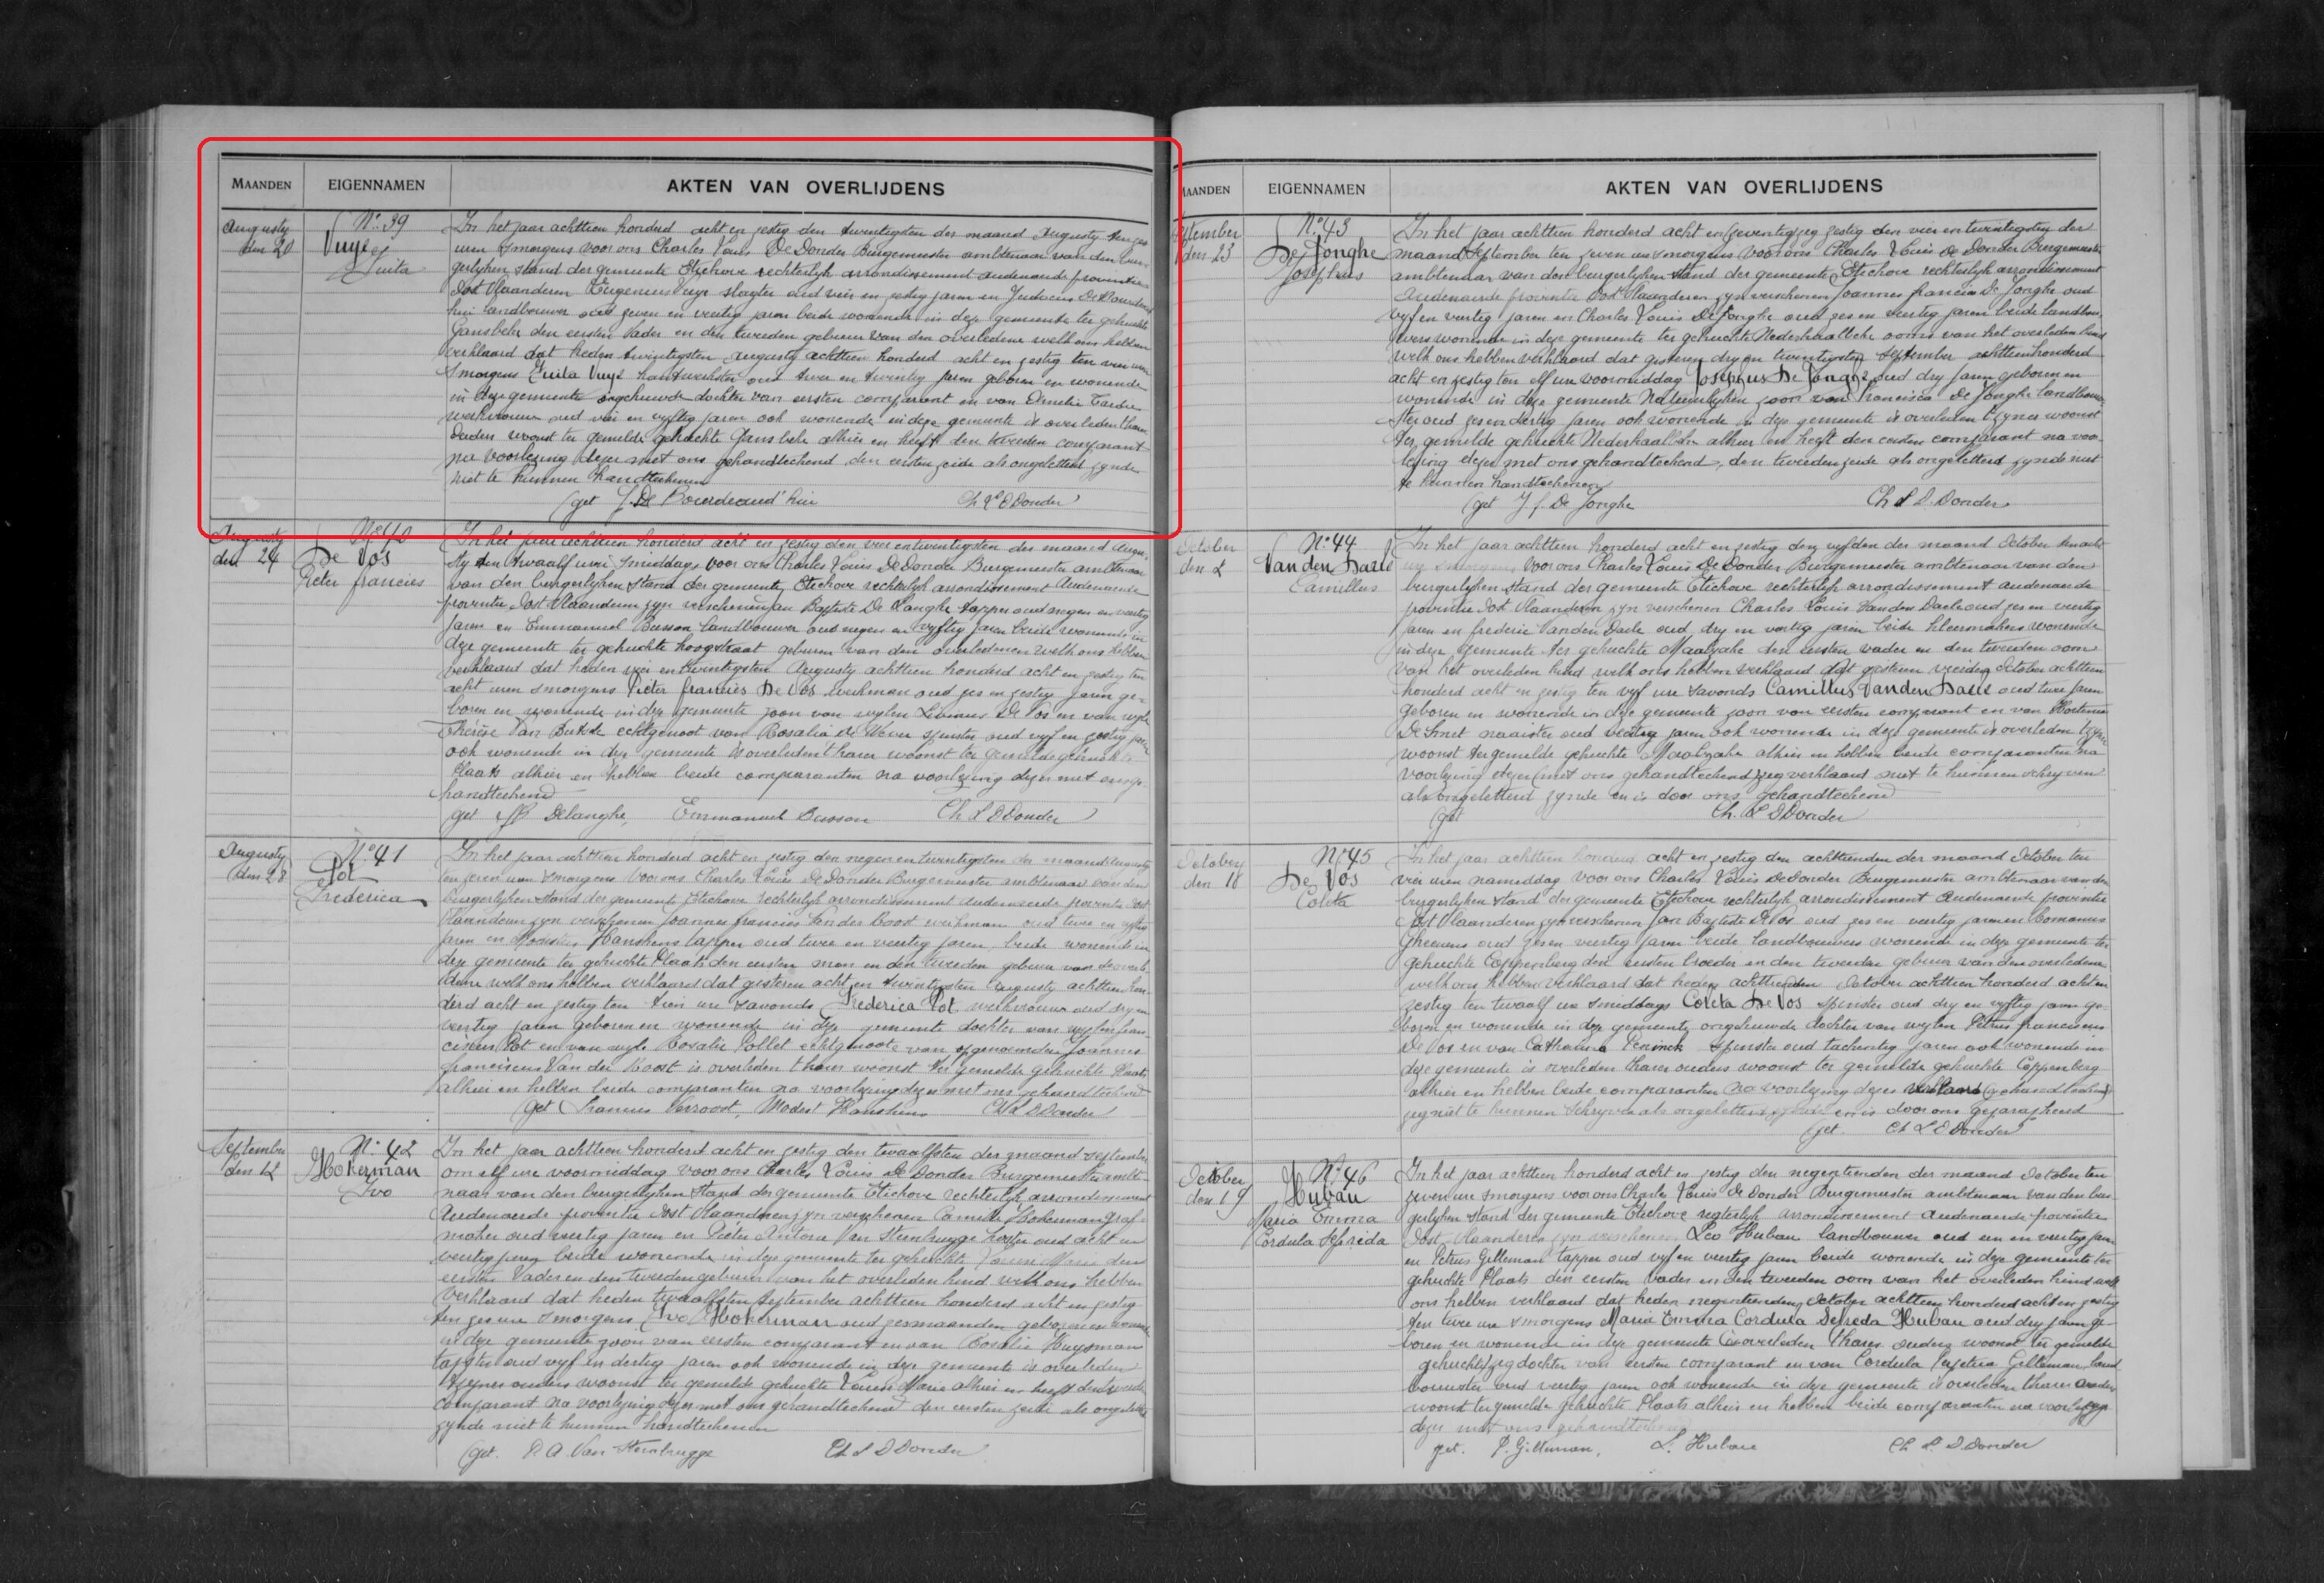 MAANDEN EIGENNAMEN AKTEN VAN OVERLIJDENS
Augusty den 20
N° 39
Vuye
In het jaar achttien honderd acht en zestig den twintigsten der maand Augusty ten zes
uren smorgens voor ons Charles Louis De Donder Burgemeester ambtenaar van den bur-
gerlyken stand der gemeente Etichove rechterlyk arrondissement audenaarde provintie
Oost Vlaanderen Eugenius Vuye slagter oud vier en zestig jaren en Judocus De Bourdeaud
hui landbouwer oud zeven en veertig jaren beide wonende in deze gemeente ter gehuchte
Gansbeke den eersten vader en den tweeden gebuur van den overledene welk ons hebben
verklaard dat heden twintigsten augusty achttien honderd acht en zestig ten vier uren
smorgens Vuye oud twee en twintig jaren geboren en wonende
in deze gemeente ongehuwde dochter van eersten comparant en van
werkvrouw oud vyftig jaren ook wonende in deze gemeente is overleden tharer
ouders woonst ter gemelde gehuchte Gansbeke alhier en heeft den tweeden comparant
na voorlezing dezer met ons gehandteekend den eersten zeide als ongeletterd zynde
niet te kunnen handteekenen
(get J. De Bourdeaud'hui Ch L D Donder
Augusty den 24
N° 40
De Vos
Pieter francies
In het jaar achttien honderd acht en zestig den vier en twintigsten der maand Augus-
ty den twaalf uren smiddags voor ons Charles Louis De Donder Burgemeester ambtenaar
van den burgerlyken stand der gemeente Etichove rechterlyk arrondissement Audenaarde
provintie Oost Vlaanderen zyn verschenen Jan Baptiste De Langhe tapper oud negen en veertig
jaren en Emmanuel Busson landbouwer oud negen en vyftig jaren beide wonende in
deze gemeente ter gehuchte hoogstraat geburen van den overledenen welk ons hebben
verklaard dat heden vier en twintigsten Augusty achttien honderd acht en zestig ten
acht uren smorgens Pieter francies De Vos werkman oud zes en zestig jaren ge-
boren en wonende in deze gemeente zoon van wylen Livinus De Vos en van wyle
Thérèse Van echtgenoot van Rosalia De Wever spinster oud vyf en zestig jaren
ook wonende in deze gemeente is overleden tharer woonst ter gemelde gehuchte
Plaats alhier en hebben beide comparanten na voorlezing dezer met ons ge-
handteekend
get JB Delanghe, Emmanuel Busson Ch L D Donder
Augusty den 28
N° 41
Pot
Frederica
In het jaar achttien honderd acht en zestig den negen en twintigsten der maand Augusty
ten zeven uren smorgens voor ons Charles Louis De Donder Burgemeester ambtenaar van den
burgerlyken stand der gemeente Etichove rechterlyk arrondissement Audenaarde provintie Oost
Vlaanderen zyn verschenen Joannes francies Van der Voost werkman oud twee en vyftig
jaren en Modestus Hanskens tapper oud twee en veertig jaren beide wonende in
deze gemeente ter gehuchte Plaats den eersten man en den tweeden gebuur van de overle-
dene welk ons hebben verklaard dat gisteren acht en twintigsten Augusty achttien hon-
derd acht en zestig ten tien ure savonds Frederica Pot werkvrouw oud dry en
veertig jaren geboren en wonende in deze gemeente dochter van wylen fran-
ciscus Pot en van wyle Rosalie Pollet echtgenoote van opgenoemden Joannes
franciscus Van der Voost is overleden tharer woonst ter gemelde gehuchte Plaats
alhier en hebben beide comparanten na voorlezing dezer met ons gehandteekend
get Francies Vervoost, Modest Hanskens Ch L D Donder
September den 12
N° 42
Hokerman
Ivo
In het jaar achttien honderd acht en zestig den twaalfsten der maand september
om elf ure voormiddag voor ons Charles Louis De Donder Burgemeester ambte-
naar van den burgerlyken stand der gemeente Etichove rechterlyk arrondissement
Audenaerde provintie Oost Vlaanderen zyn verschenen Camille Hokerman graf-
maker oud veertig jaren en Pieter Antone Van Steenbrugge koster oud acht en
veertig jaren beide wonende in deze gemeente ter gehuchte Louise Marie den
eersten vader en den tweeden gebuur van het overleden kind welk ons hebben
verklaard dat heden twaalfsten september achttien honderd acht en zestig
ten zes ure smorgens Ivo Hokerman oud zes maanden geboren en wonende
in deze gemeente zoon van eersten comparant en van Rosalie Huysman
tapster oud vyf en dertig jaren ook wonende in deze gemeente is overleden
tzynes ouders woonst ter gemelde gehuchte Louise Marie alhier en heeft den tweede
comparant na voorlezing dezer met ons gehandteekend den eersten zeide als ongeletterd
zynde niet te kunnen handteekenen
(get. P. A. Van Steenbrugge Ch L D Donder
MAANDEN EIGENNAMEN AKTEN VAN OVERLIJDENS
September den 23
N° 43
De Jonghe
Josephus
In het jaar achttien honderd acht en zeventig zeg zestig den vier en twintigsten der
maand September ten zeven ure smorgens voor ons Charles Louis De Donder Burgemeester
ambtenaar van den burgerlyken stand der gemeente Etichove rechterlyk arrondissement
Audenaerde provintie Oost Vlaanderen zyn verschenen Joannes francies De Jonghe oud
vyf en veertig jaren en Charles Louis De Jonghe oud zes en veertig jaren beide landbou-
wers wonende in deze gemeente ter gehuchte Nederhaalbeke ooms van het overleden kind
welk ons hebben verklaard dat gisteren dry en twintigsten september achttien honderd
acht en zestig ten elf ure voormiddag Josephus De Jonghe oud dry jaren geboren en
wonende in deze gemeente Natuerlyken zoon van Francisca De Jonghe landbouw-
ster oud zes en dertig jaren ook wonende in deze gemeente is overleden tzyner woonst
ter gemelde gehuchte Nederhaalbeke alhier en heeft den eersten comparant na voor-
lezing dezer met ons gehandteekend, den tweeden zeide als ongeletterd zynde niet
te kunnen handteekenen
(get J. f. De Jonghe Ch L D. Donder
October den 4
N° 44
Van den Daele
Camillus
In het jaar achttien honderd acht en zestig den vyfden der maand October ten acht
ure smorgens voor ons Charles Louis De Donder Burgemeester ambtenaar van den
burgerlyken stand der gemeente Etichove rechterlyk arrondissement audenaarde
provintie Oost Vlaanderen zyn verschenen Charles Louis Van den Daele oud zes en veertig
jaren en frederic Van den Daele oud dry en veertig jaren beide kleermakers wonende
in deze gemeente ter gehuchte Maalzake den eersten vader en den tweeden oom
van het overleden kind welk ons hebben verklaard dat gisteren vierden October achttien
honderd acht en zestig ten vyf ure savonds Camillus Van den Daele oud twee jaren
geboren en wonende in deze gemeente zoon van eersten comparant en van Hortense
De Smet naaister oud veertig jaren ook wonende in deze gemeente is overleden tzyner
woonst ter gemelde gehuchte Maalzake alhier en hebben beide comparanten na
voorlezing dezer (met ons gehandteekend) zeg verklaard niet te kunnen schryven
als ongeletterd zynde en is door ons gehandteekend
(get Ch. L D Donder
October den 18
N° 45
De Vos
Coleta
In het jaar achttien honderd acht en zestig den achttienden der maand October ten
vier uren namiddag voor ons Charles Louis De Donder Burgemeester ambtenaar van den
burgerlyken stand der gemeente Etichove rechterlyk arrondissement Audenaerde provintie
Oost Vlaanderen zyn verschenen Jan Baptiste De Vos oud zes en veertig jaren en Romanus
Gheevens oud zes en veertig jaren beide landbouwers wonende in deze gemeente ter
gehuchte Coppenberg den eersten broeder en den tweeden gebuur van den overledene
welk ons hebben verklaard dat heden achttienden October achttien honderd acht en
zestig ten twaalf ure smiddags Coleta De Vos spinster oud dry en vyftig jaren ge-
boren en wonende in deze gemeente ongehuwde dochter van wylen Petrus franciscus
De Vos en van Catharina spinster oud tachentig jaren ook wonende in
deze gemeente is overleden tharer ouders woonst ter gemelde gehuchte Coppenberg
alhier en hebben beide comparanten na voorlezing dezer verklaard (gehandteekend)
zeg niet te kunnen schryven als ongeletterd zynde en is door ons geparapheerd
(get. Ch L D Donder
October den 19
N° 46
Hubau
Maria Emma
Cordula
In het jaar achttien honderd acht en zestig den negentienden der maand October ten
zeven ure smorgens voor ons Charles Louis De Donder Burgemeester ambtenaar van den bur-
gerlyken stand der gemeente Etichove regterlyk arrondissement Audenaerde provintie
Oost Vlaanderen zyn verschenen Leo Hubau landbouwer oud een en veertig jaren
en Petrus Gilleman tapper oud vyf en veertig jaren beide wonende in deze gemeente ter
gehuchte Plaats den eersten vader en den tweeden oom van het overleden kind welk
ons hebben verklaard dat heden negentienden October achttien honderd acht en zestig
ten twee ure smorgens Maria Emma Cordula Hubau oud dry jaren ge-
boren en wonende in deze gemeente (is overleden tharer ouders woonst ter gemelde
gehuchte) zeg dochter van eersten comparant en van Cordula Gilleman land-
bouwster oud veertig jaren ook wonende in deze gemeente is overleden tharer ouders
woonst ter gemelde gehuchte Plaats alhier en hebben beide comparanten na voorlezing
dezer met ons gehandteekend
get. P. Gilleman, L. Hubau Ch L. D Donder